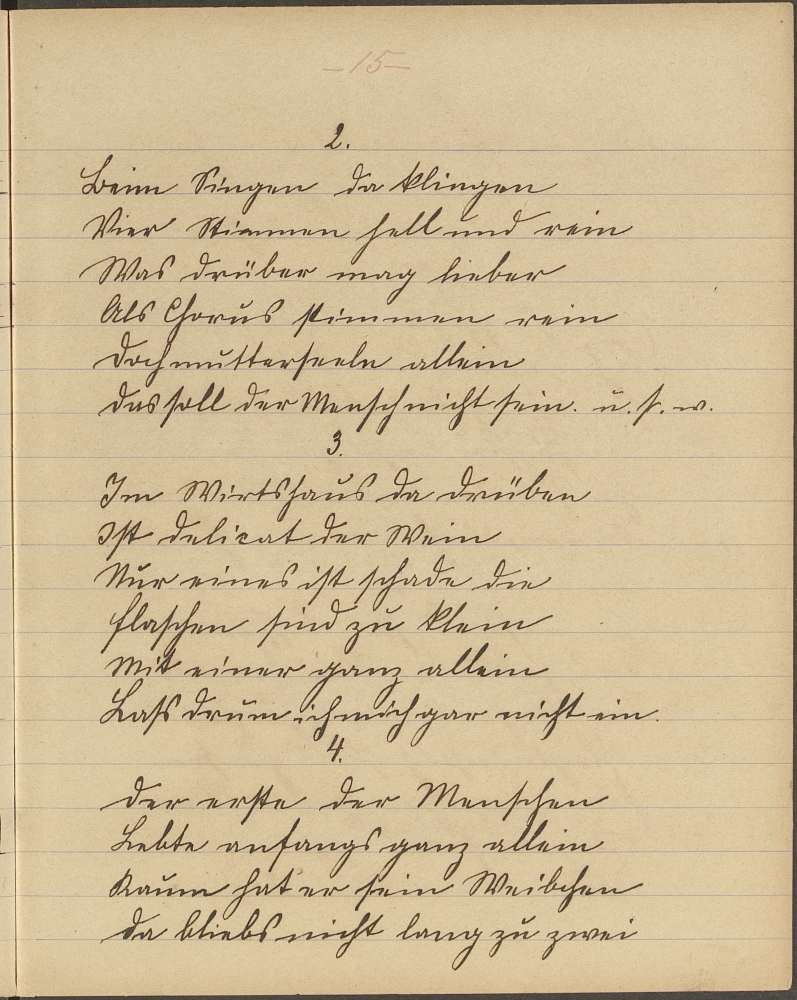 -15-
2.
Beim Singen da klingen
Vier Stimmen hell und rein
Was drüber mag lieber
Als Chorus stimmen rein
Doch mutterseeln allein
Das soll der Mensch nicht sein. u. s. w.
3.
Im Wirtshaus da drüben
Ist delicat der Wein
Nur eines ist schade die
Flaschen sind zu klein
Mit einer ganz allein
Lass drum ich mich gar nicht ein.
4.
Der erste der Menschen
Lebte anfangs ganz allein
Kaum hat er sein Weibchen
Da bliebs nicht lang zu zwei